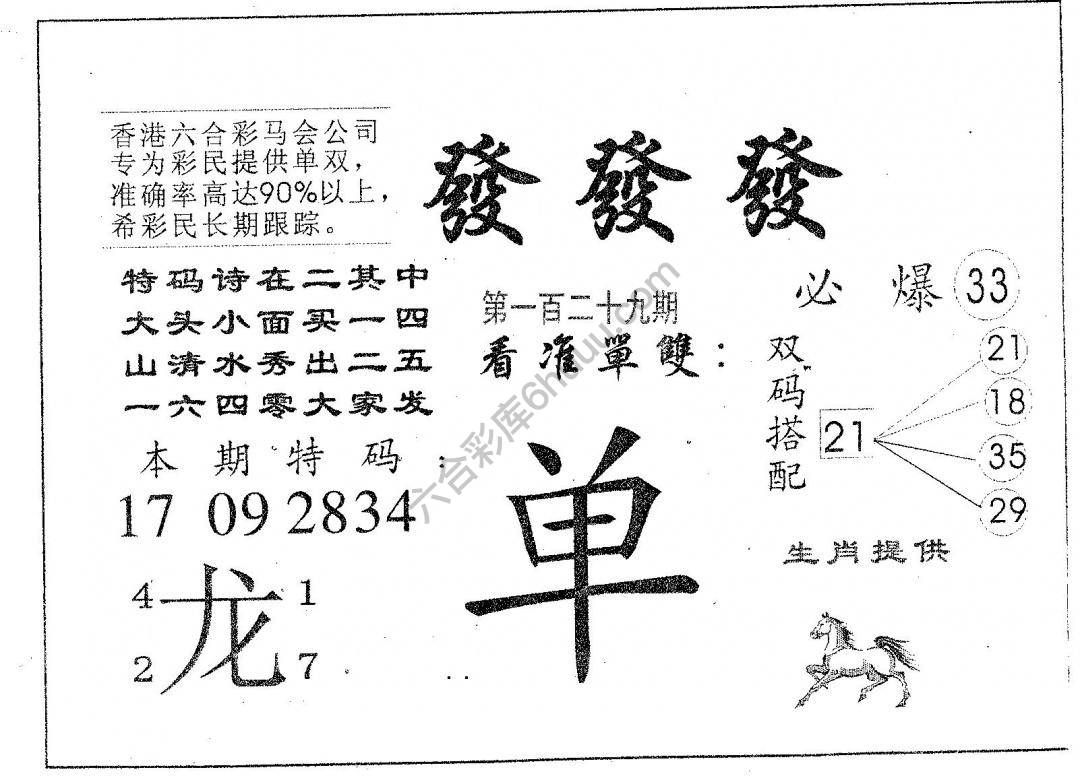 香港六合彩马会公司
专为彩民提供单双，
准确率高达90%以上，
希彩民长期跟踪。
發 發 發
特码诗在二其中
大头小面买一四
山清水秀出二五
一六四零大家发
第一百二十九期
看准單雙：
必爆 33
双码搭配
21
21
18
35
29
本期特码：
17 09 28 34
单
生肖提供
4 龙 1
2 7
六合彩库6huuu.com